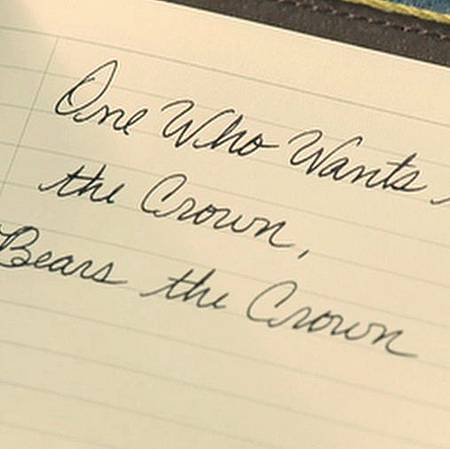 One Who Wants
the Crown,
Bears the Crown